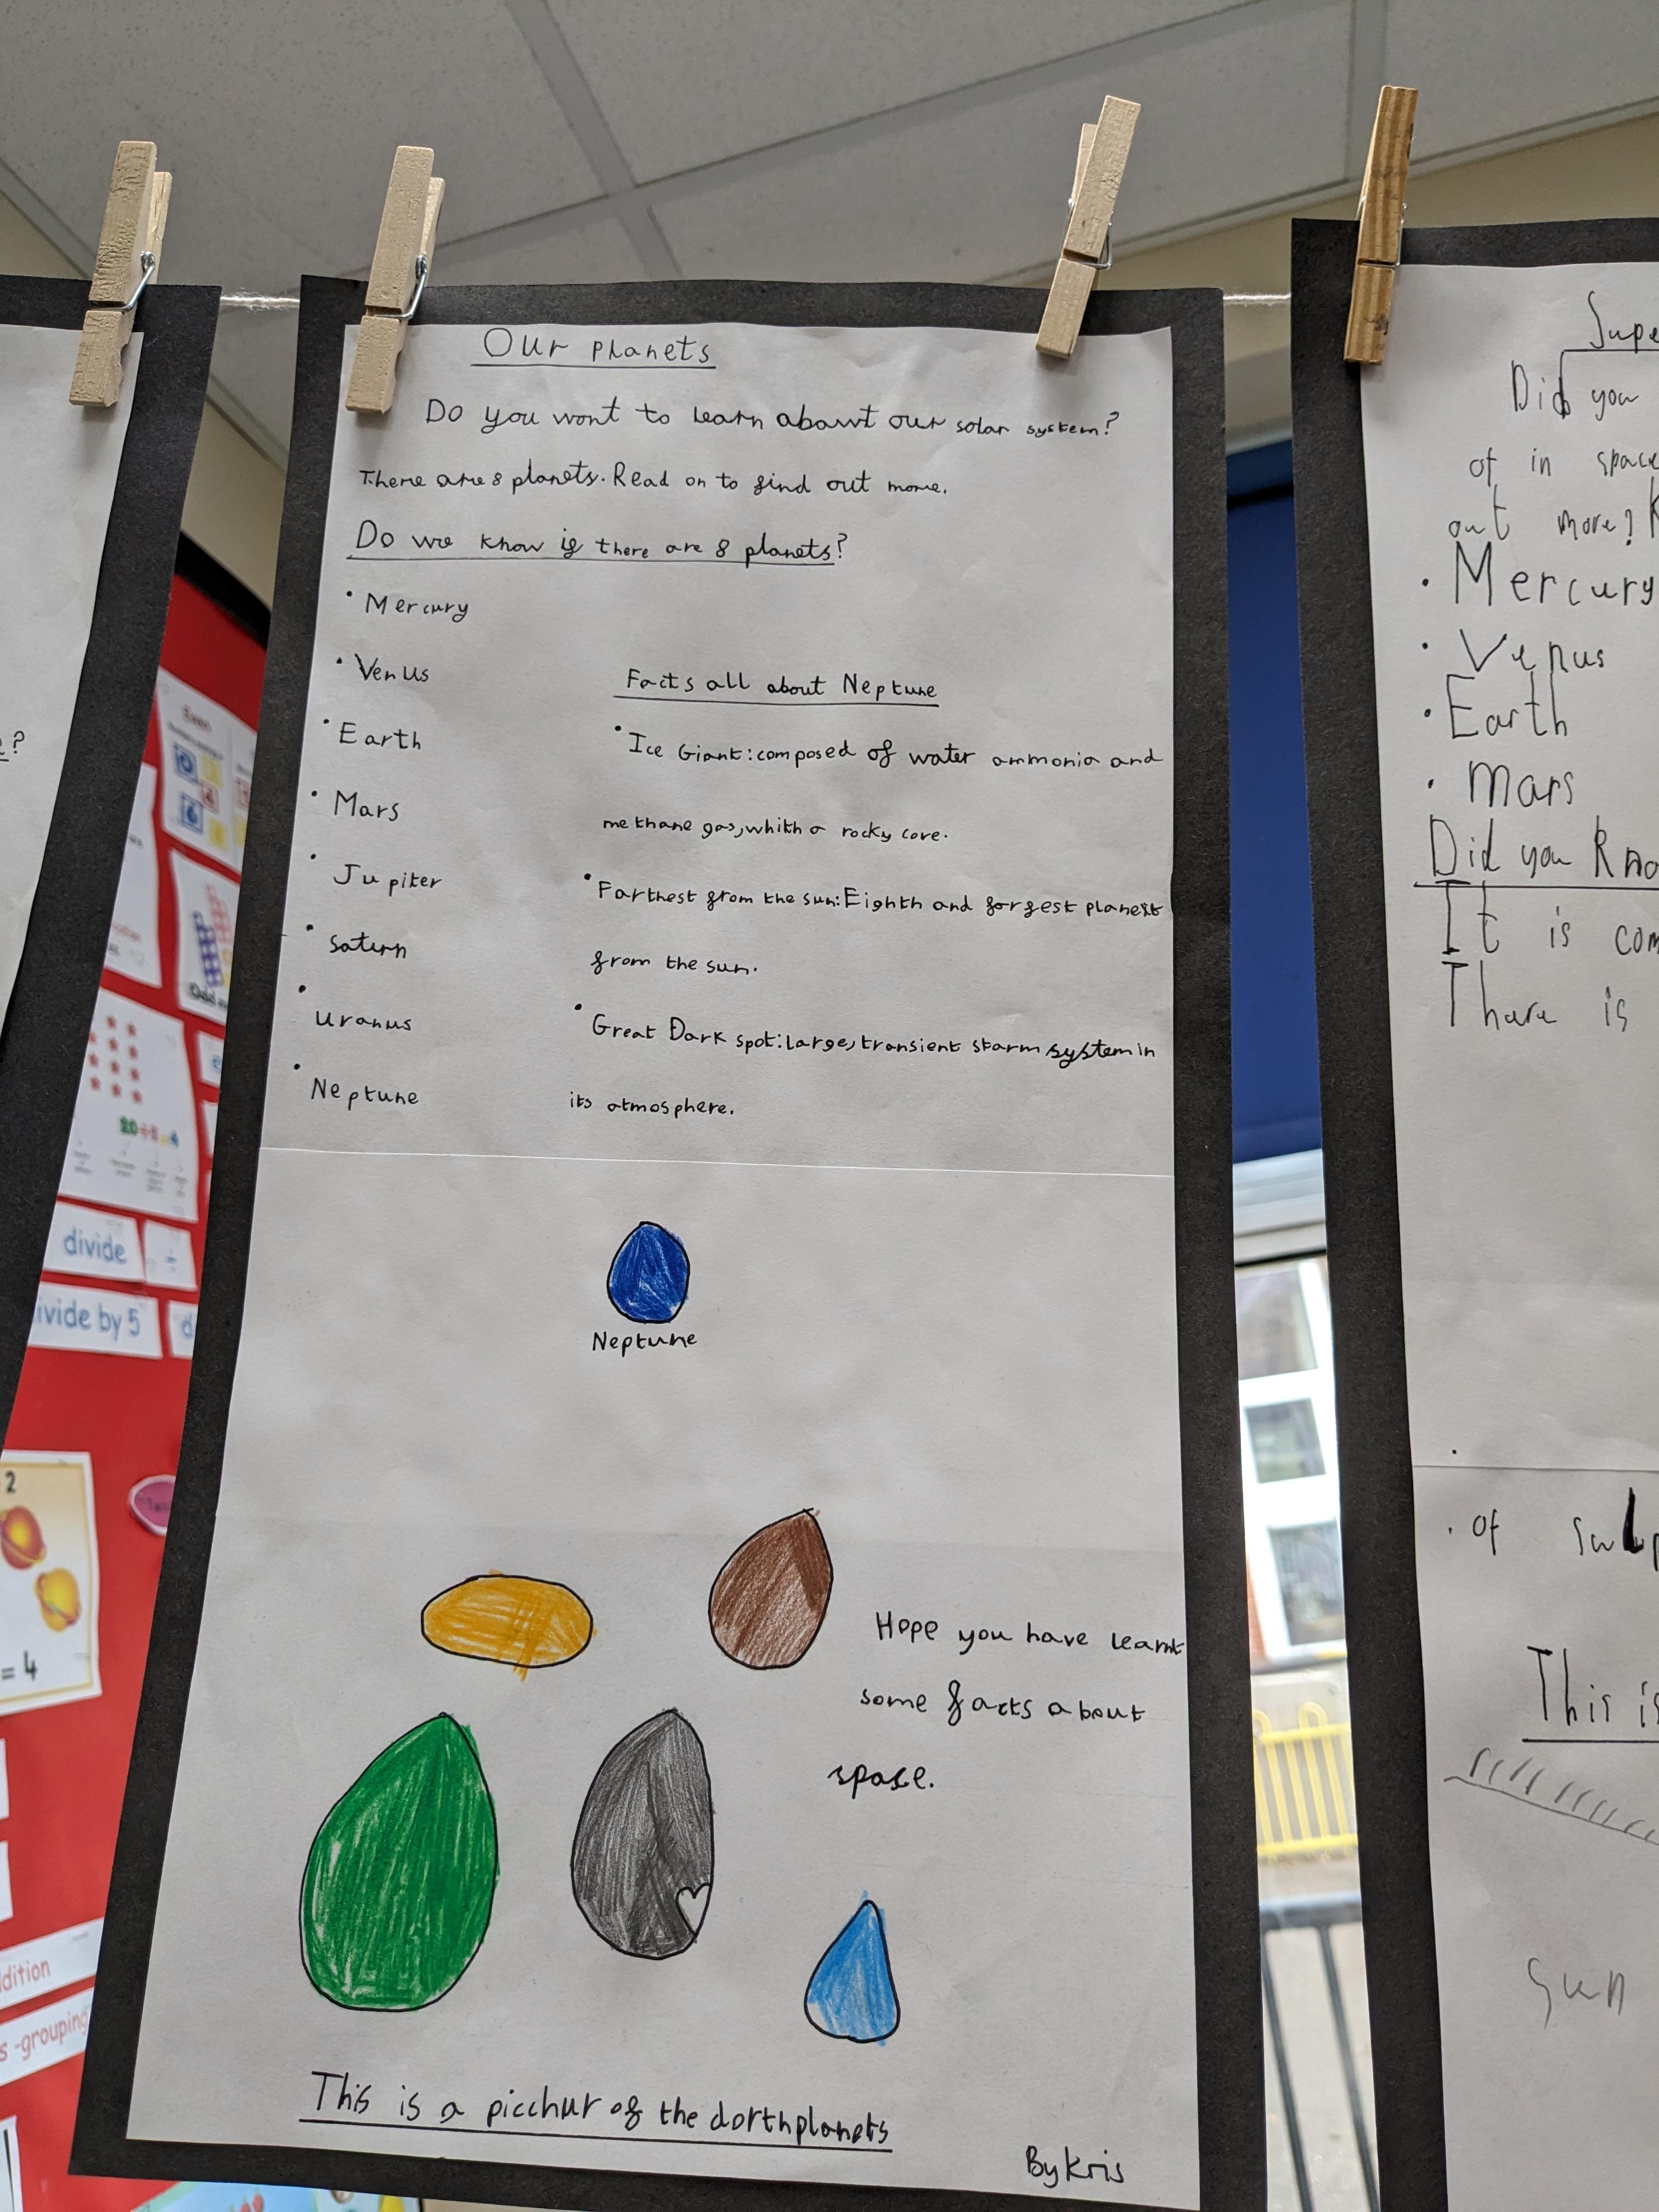 Our planets
Do you wont to learn abowt our solar system?
There are 8 planets. Read on to find out more.
Do we know if there are 8 planets?
• Mercury
• Venus
• Earth
• Mars
• Jupiter
• Saturn
• Uranus
• Neptune
Facts all about Neptune
• Ice Giant: composed of water ammonia and
methane gas, whith a rocky core.
• Farthest from the sun: Eighth and
from the sun.
• Great Dark spot: Large, transient storm system in
its atmosphere.
Neptune
Hope you have learnt
some facts about
space.
This is a picchur of the dorthplanets
By Kris
Supe
Did you
of in space
out more?
• Mercury
• Venus
• Earth
• Mars
Did you Kno
It is com
There is
• of
This is
Sun
?
Even
Odd
20÷5=4
divide
÷
ivide by 5
d
2
= 4
ddition
s -grouping